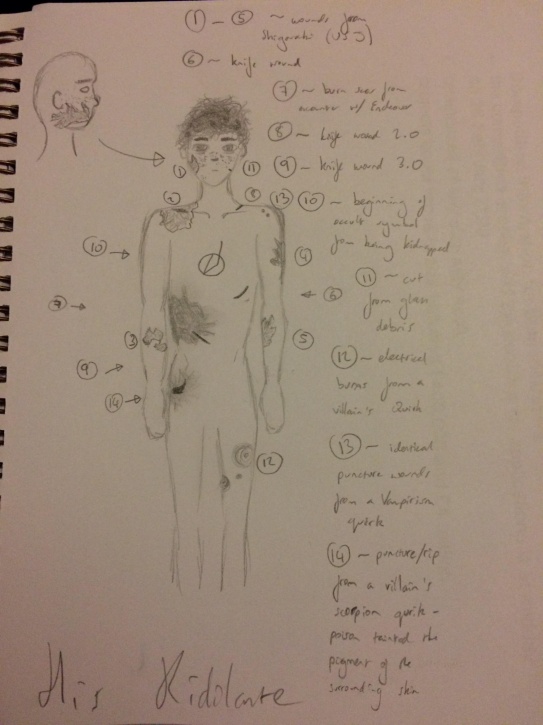 ① - ⑤ ~ wounds from
Shigaraki (USJ)
⑥ ~ knife wound
⑦ ~ burn scar from
encounter w/ Endeavor
⑧ ~ knife wound 2.0
⑨ ~ knife wound 3.0
⑩ ~ beginning of
occult symbol
from being kidnapped
⑪ ~ cut
from glass
debris
⑫ ~ electrical
burns from a
villain's Quirk
⑬ ~ identical
puncture wounds
from a Vampirism
quirk
⑭ ~ puncture/rip
from a villain's
scorpion quirk -
poison tainted the
pigment of the
surrounding skin
①
⑪
②
⑧
⑬
⑩
④
⑥
⑦
③
⑤
⑨
⑭
⑫
His